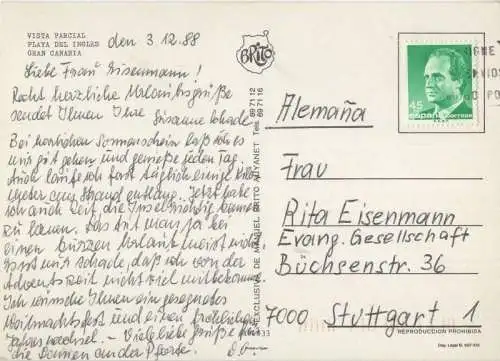 VISTA PARCIAL
PLAYA DEL INGLES
GRAN CANARIA
den 3.12.88
Liebe Frau Eisenmann!
Recht herzliche Urlaubsgrüße
sendet Ihnen Ihre
Susanne
Bei herrlichem Sonnenschein laß ich es
mir gut gehen und genieße jeden Tag.
Auch laufe ich fast täglich einige Kilo-
meter am Strand entlang. Jetzt habe
ich auch Zeit die Insel richtig kennen
zu lernen. Das tut man ja bei
einen kurzen Urlaub meist nicht.
Ist nur schade, daß ich von der
Adventszeit nicht viel mitbekomme.
Ich wünsche Ihnen ein gesegnetes
Weihnachtsfest und einen fröhlichen
Jahreswechsel. - Viele liebe Grüße an
die Damen an der Pforte.
BRITO
EXCLUSIVA DE MANUEL BRITO AUYANET
Tels. 69 71 12
69 71 16
45
españa
CORREOS
Alemaña
Frau
Rita Eisenmann
Evang. Gesellschaft
Büchsenstr. 36
7000 Stuttgart 1
REPRODUCCION PROHIBIDA